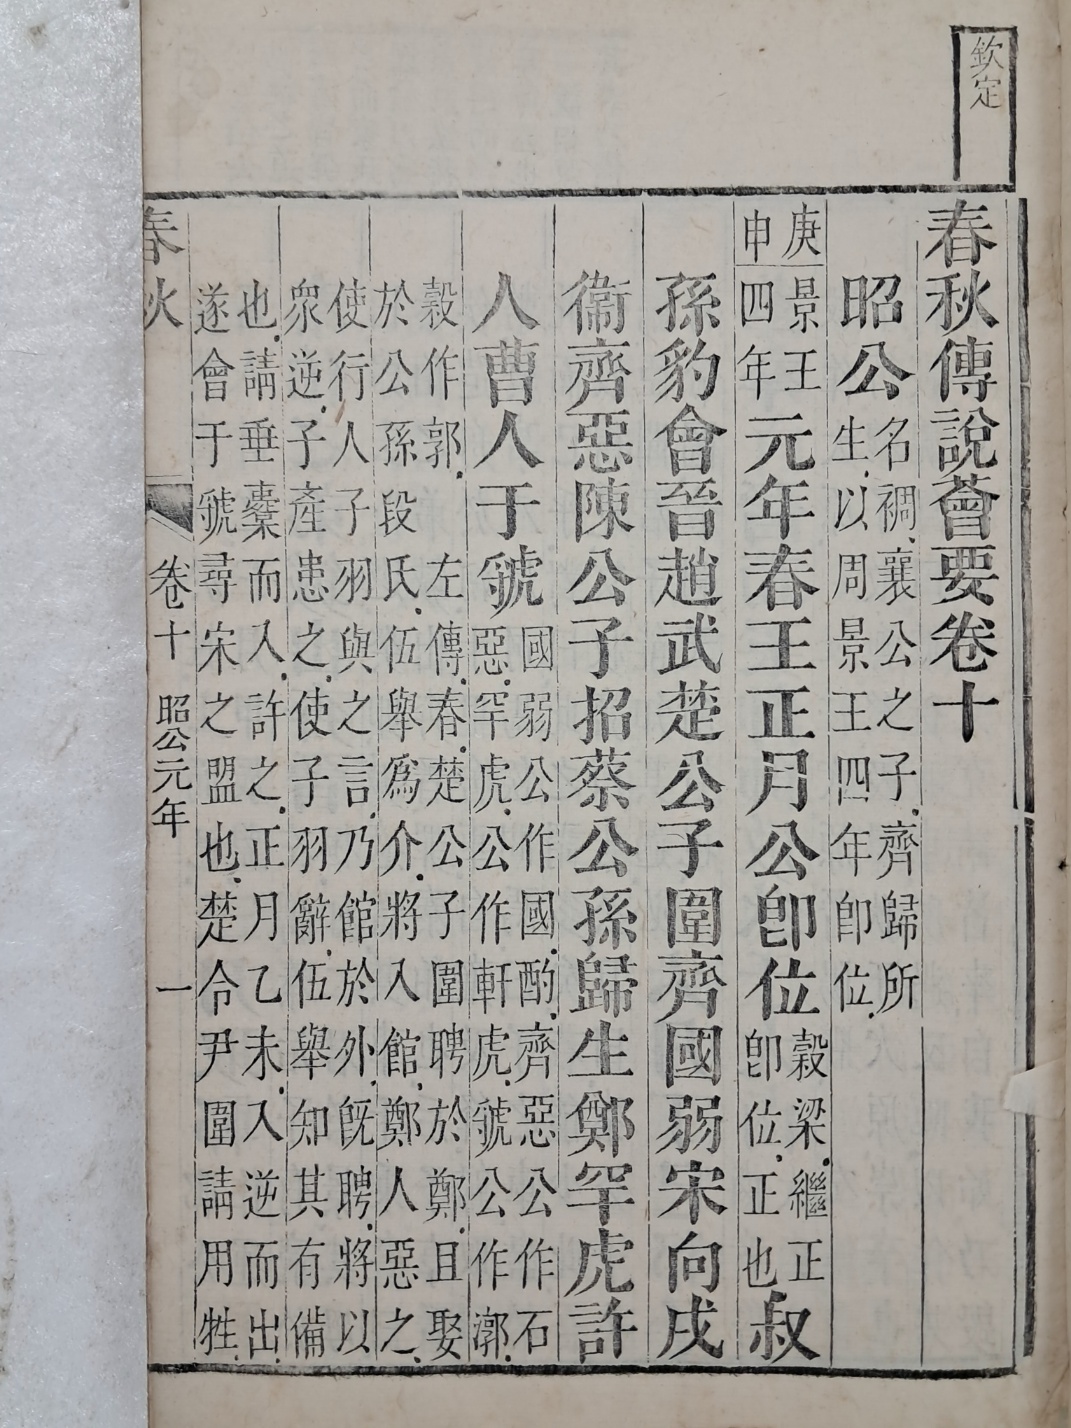 欽定
春秋傳說薈要卷十
昭公名裯、襄公之子、齊歸所
生、以周景王四年卽位、
庚申景王四年元年春王正月公卽位穀梁、繼正卽位、正也叔
孫豹會晉趙武楚公子圍齊國弱宋向戌
衞齊惡陳公子招蔡公孫歸生鄭罕虎許
人曹人于虢國弱公作國酌、齊惡公作石
惡、罕虎、公作軒虎、虢公作漷、
穀作郭、左傳、春、楚公子圍聘於鄭、且娶
於公孫段氏、伍舉爲介、將入館、鄭人惡之、
使行人子羽與之言、乃館於外、既聘、將以
衆逆、子產患之、使子羽辭、伍舉知其有備
也、請垂櫜而入、許之、正月乙未、入逆而出、
遂會于虢尋宋之盟也、楚令尹圍請用牲、
春秋 卷十 昭公元年 一